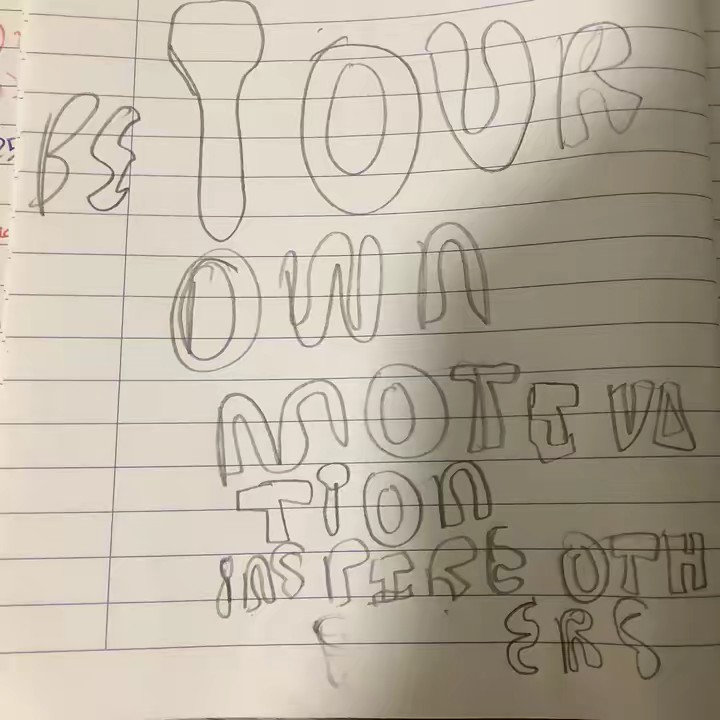 BE YOUR
OWN
MOTIVA
TION
INSPIRE OTH
ERS